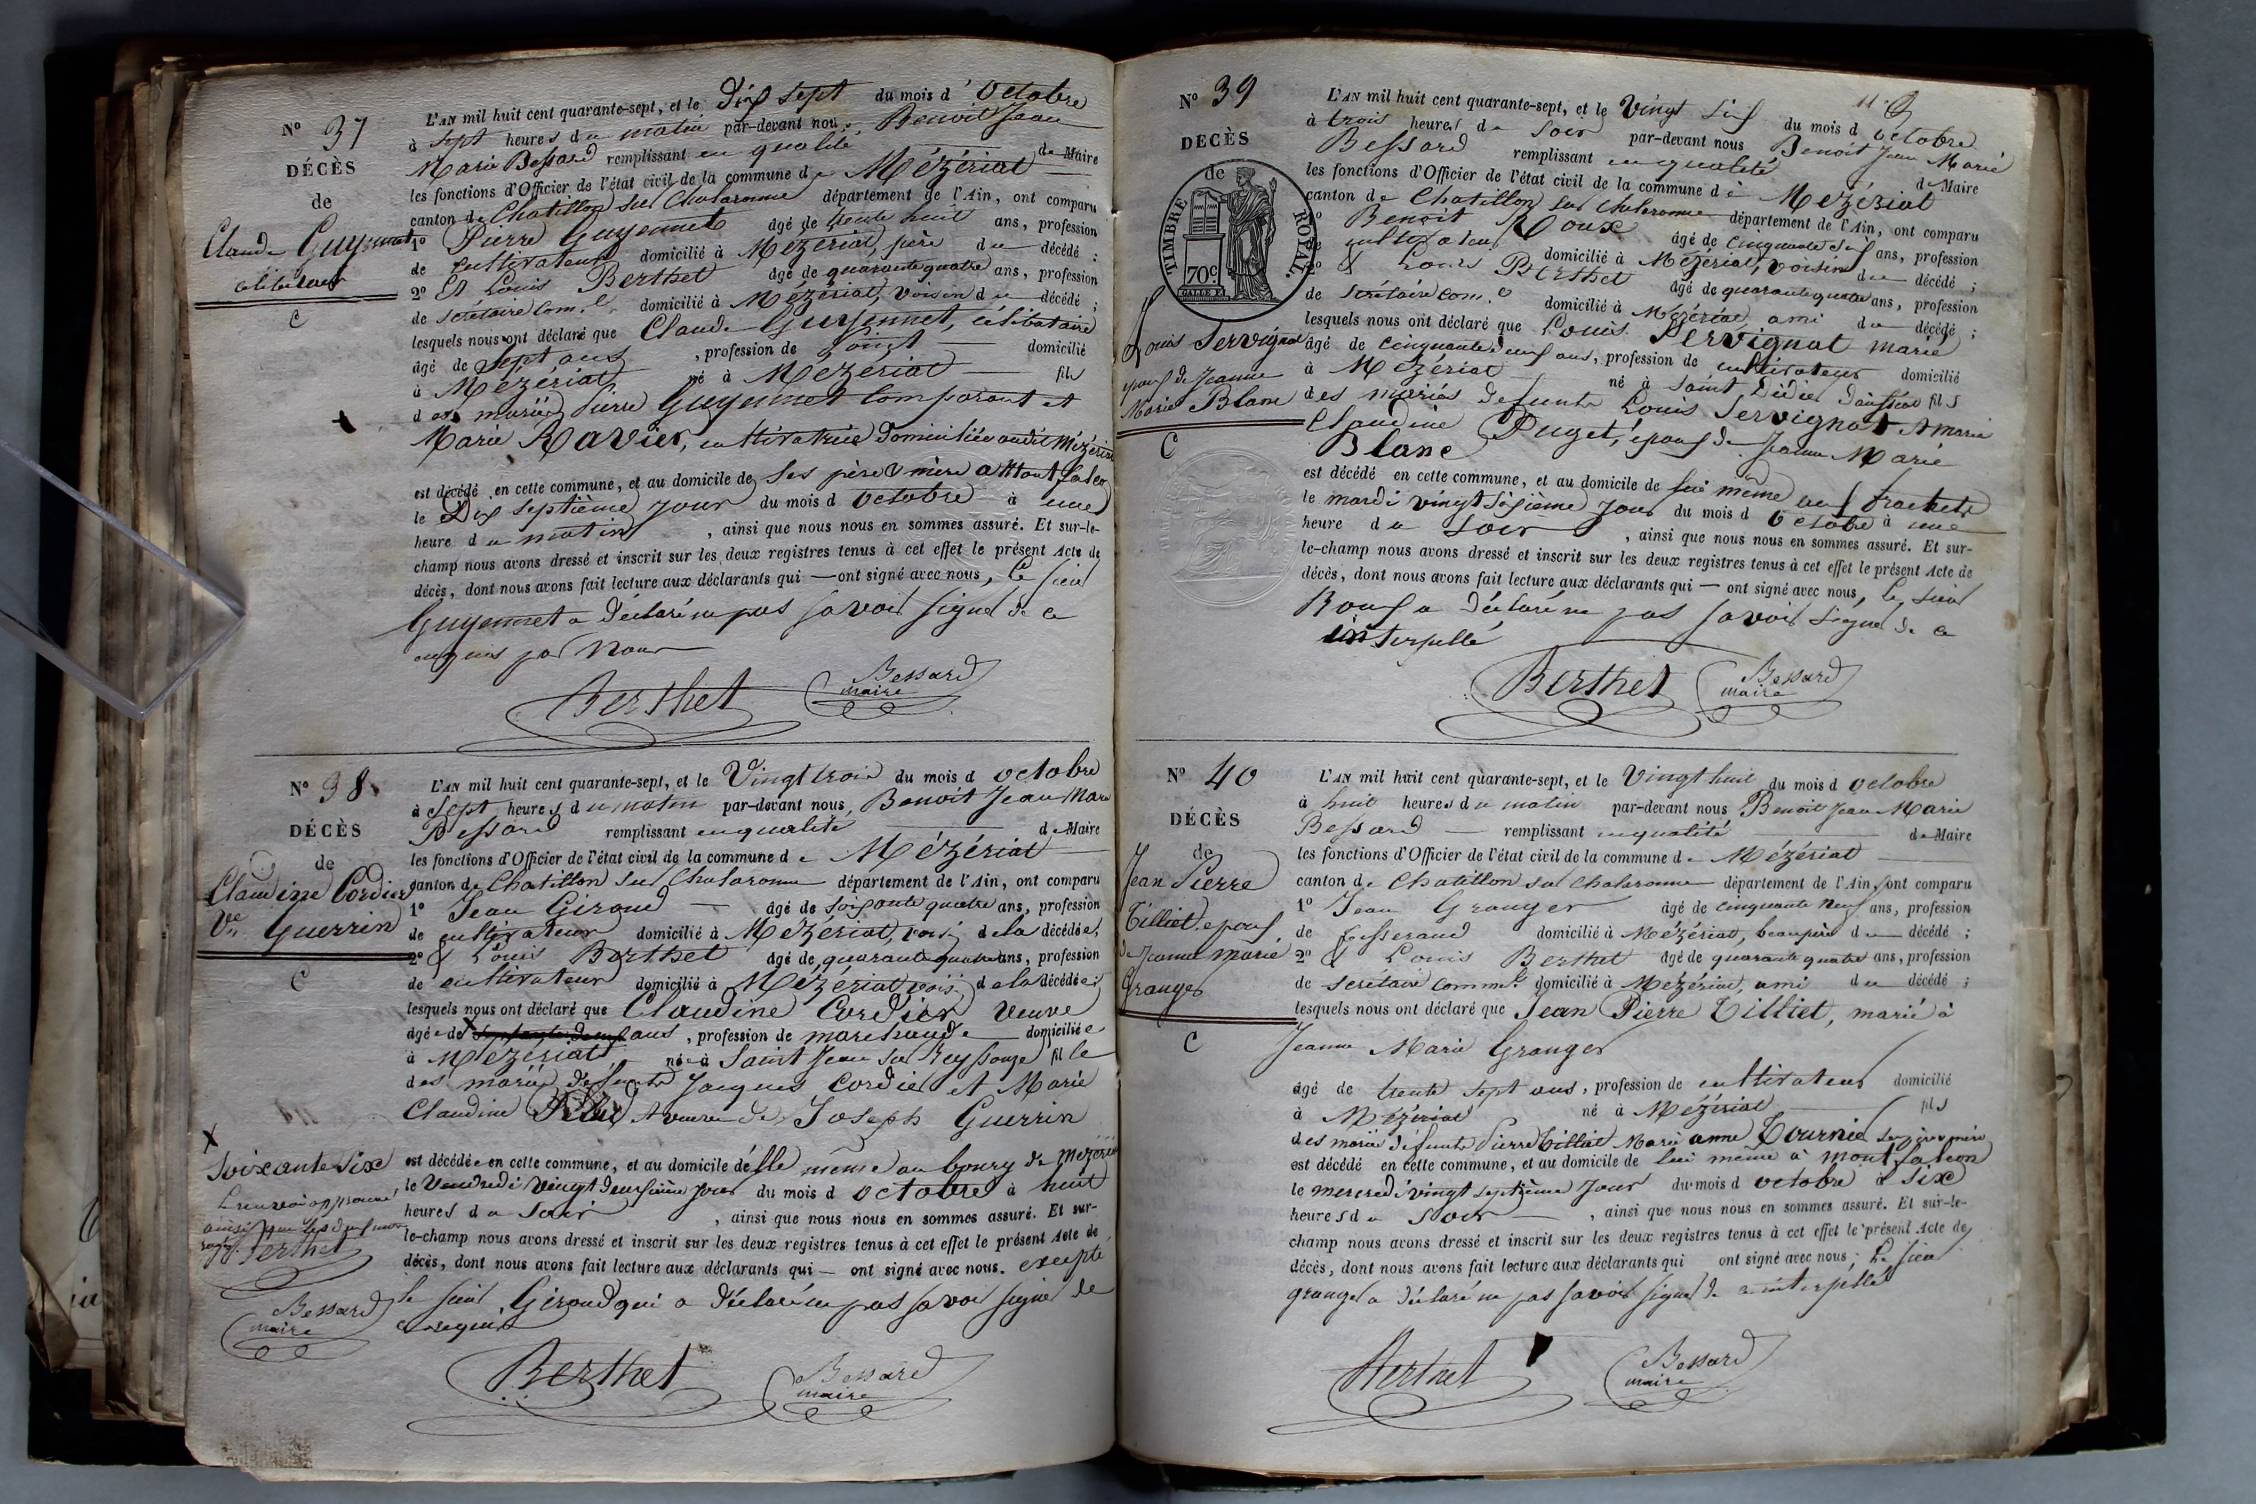 N° 37
DÉCÈS
de
Claude Guyennet
célibataire
C
L'AN mil huit cent quarante-sept, et le Dix sept du mois d'octobre
à sept heures du matin par-devant nous Benoit Jean
Marie Bessard remplissant en qualité de Maire
les fonctions d'Officier de l'état civil de la commune de Mézériat
canton de Chatillon sur Chalaronne département de l'Ain, ont comparu
1° Pierre Guyennet âgé de trente huit ans, profession
de cultivateur domicilié à Mézériat, père du décédé ;
2° & Louis Berthet âgé de quarante quatre ans, profession
de secrétaire com.l domicilié à Mézériat, voisin du décédé ;
lesquels nous ont déclaré que Claude Guyennet, célibataire
âgé de sept ans, profession de domicilié
à Mézériat né à Mézériat fils
des mariés Pierre Guyennet Comparant et
Marie Ravier, cultivatrice domiciliée audit Mézériat
est décédé en cette commune, et au domicile de ses père & mère à Montfalcon
le Dix septième jour du mois d octobre à une
heure du matin, ainsi que nous nous en sommes assuré. Et sur-le-
champ nous avons dressé et inscrit sur les deux registres tenus à cet effet le présent Acte de
décès, dont nous avons fait lecture aux déclarants qui — ont signé avec nous, le sieur
Guyennet a déclaré ne pas savoir signer de ce
requis par Nous
Berthet Bessard
maire
N° 38
DÉCÈS
de
Claudine Cordier
Ve Guerrin
C
L'AN mil huit cent quarante-sept, et le Vingt trois du mois d octobre
à sept heures du matin par-devant nous, Benoit Jean Marie
Bessard remplissant en qualité de Maire
les fonctions d'Officier de l'état civil de la commune de Mézériat
canton de Chatillon sur Chalaronne département de l'Ain, ont comparu
1° Jean Giroud âgé de soixante quatre ans, profession
de cultivateur domicilié à Mézériat, vois. de la décédée,
2° & Louis Berthet âgé de quarante quatre ans, profession
de cultivateur domicilié à Mézériat, vois. de la décédée ;
lesquels nous ont déclaré que Claudine Cordier veuve
âgée de X ans, profession de marchande domiciliée
à Mézériat née à Saint Jean sur Reyssouze fille
des mariés défunts Jacques Cordier et Marie
Claudine & veuve de Joseph Guerrin
X
soixante six
est décédée en cette commune, et au domicile d'elle même au bourg de Mézériat
le Vendredi vingt deuxième jour du mois d octobre à huit
heures du soir, ainsi que nous nous en sommes assuré. Et sur-
le-champ nous avons dressé et inscrit sur les deux registres tenus à cet effet le présent Acte de
décès, dont nous avons fait lecture aux déclarants qui — ont signé avec nous. excepté
le sieur Giroud qui a déclaré ne pas savoir signer de
ce requis
Le renvoi approuvé
Berthet
Bessard
maire
Berthet Bessard
maire
N° 39
DECÈS
de
TIMBRE ROYAL.
70c.
Louis Servignat
époux de Jeanne
Marie Blanc
C
L'AN mil huit cent quarante-sept, et le Vingt six du mois d octobre
à trois heures du soir par-devant nous Benoit Jean Marie
Bessard remplissant en qualité de Maire
les fonctions d'Officier de l'état civil de la commune de Mézériat
canton de Chatillon sur Chalaronne département de l'Ain, ont comparu
1° Benoit Roux âgé de cinquante six ans, profession
de cultivateur domicilié à Mézériat, voisin du décédé ;
2° & Louis Berthet âgé de quarante quatre ans, profession
de secrétaire com.l domicilié à Mézériat, ami du décédé ;
lesquels nous ont déclaré que Louis Servignat marié
âgé de cinquante deux ans, profession de cultivateur domicilié
à Mézériat né à Saint Didier d'aussiat fils
des mariés defunts Louis Servignat & Marie
Claudine Puget, époux de Jeanne Marie
Blanc
est décédé en cette commune, et au domicile de lui même
le mardi vingt sixième jour du mois d octobre à une
heure du soir, ainsi que nous nous en sommes assuré. Et sur-
le-champ nous avons dressé et inscrit sur les deux registres tenus à cet effet le présent Acte de
décès, dont nous avons fait lecture aux déclarants qui — ont signé avec nous, le sieur
Roux a déclaré ne pas savoir signer de ce
interpellé
Berthet Bessard
maire
N° 40
DÉCÈS
de
Jean Pierre
Tilliet, époux
de Jeanne Marie
Granger
C
L'AN mil huit cent quarante-sept, et le Vingt huit du mois d octobre
à huit heures du matin par-devant nous Benoit Jean Marie
Bessard — remplissant en qualité de Maire
les fonctions d'Officier de l'état civil de la commune de Mézériat
canton de Chatillon sur Chalaronne département de l'Ain, ont comparu
1° Jean Granger âgé de cinquante neuf ans, profession
de tisserand domicilié à Mézériat, beaupère du décédé ;
2° & Louis Berthet âgé de quarante quatre ans, profession
de secrétaire comm.l domicilié à Mézériat, ami du décédé ;
lesquels nous ont déclaré que Jean Pierre Tilliet, marié à
Jeanne Marie Granger
âgé de trente sept ans, profession de cultivateur domicilié
à Mézériat né à Mézériat fils
des mariés défunts Pierre Tilliet Marie anne Tournier ses père & mère
est décédé en cette commune, et au domicile de lui même à Montfalcon
le mercredi vingt septième jour du mois d octobre à six
heures du soir —, ainsi que nous nous en sommes assuré. Et sur-le-
champ nous avons dressé et inscrit sur les deux registres tenus à cet effet le présent Acte de
décès, dont nous avons fait lecture aux déclarants qui ont signé avec nous ; le sieur
Granger a déclaré ne pas savoir signer de ce interpellé
Berthet Bessard
maire